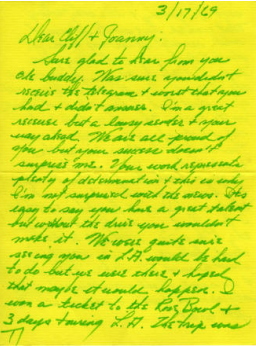 3/17/69
Dear Cliff & Joanny.
Sure glad to hear from you
ole buddy. Was sure you didn't
receive the telegram & worst that you
had & didn't answer. I'm a great
receiver but a lousy sender & your
way ahead. We are all proud of
you but your success doesn't
surprise me. Your word represents
plenty of determination & this is why
I'm not surprised with the news. It's
easy to say you have a great talent
but without the drive you wouldn't
make it. We were quite sure
seeing you in L.A. would be hard
to do but we were there & hoped
that maybe it would happen. I
won a ticket to the Rose Bowl &
3 days touring L.A. The trip was